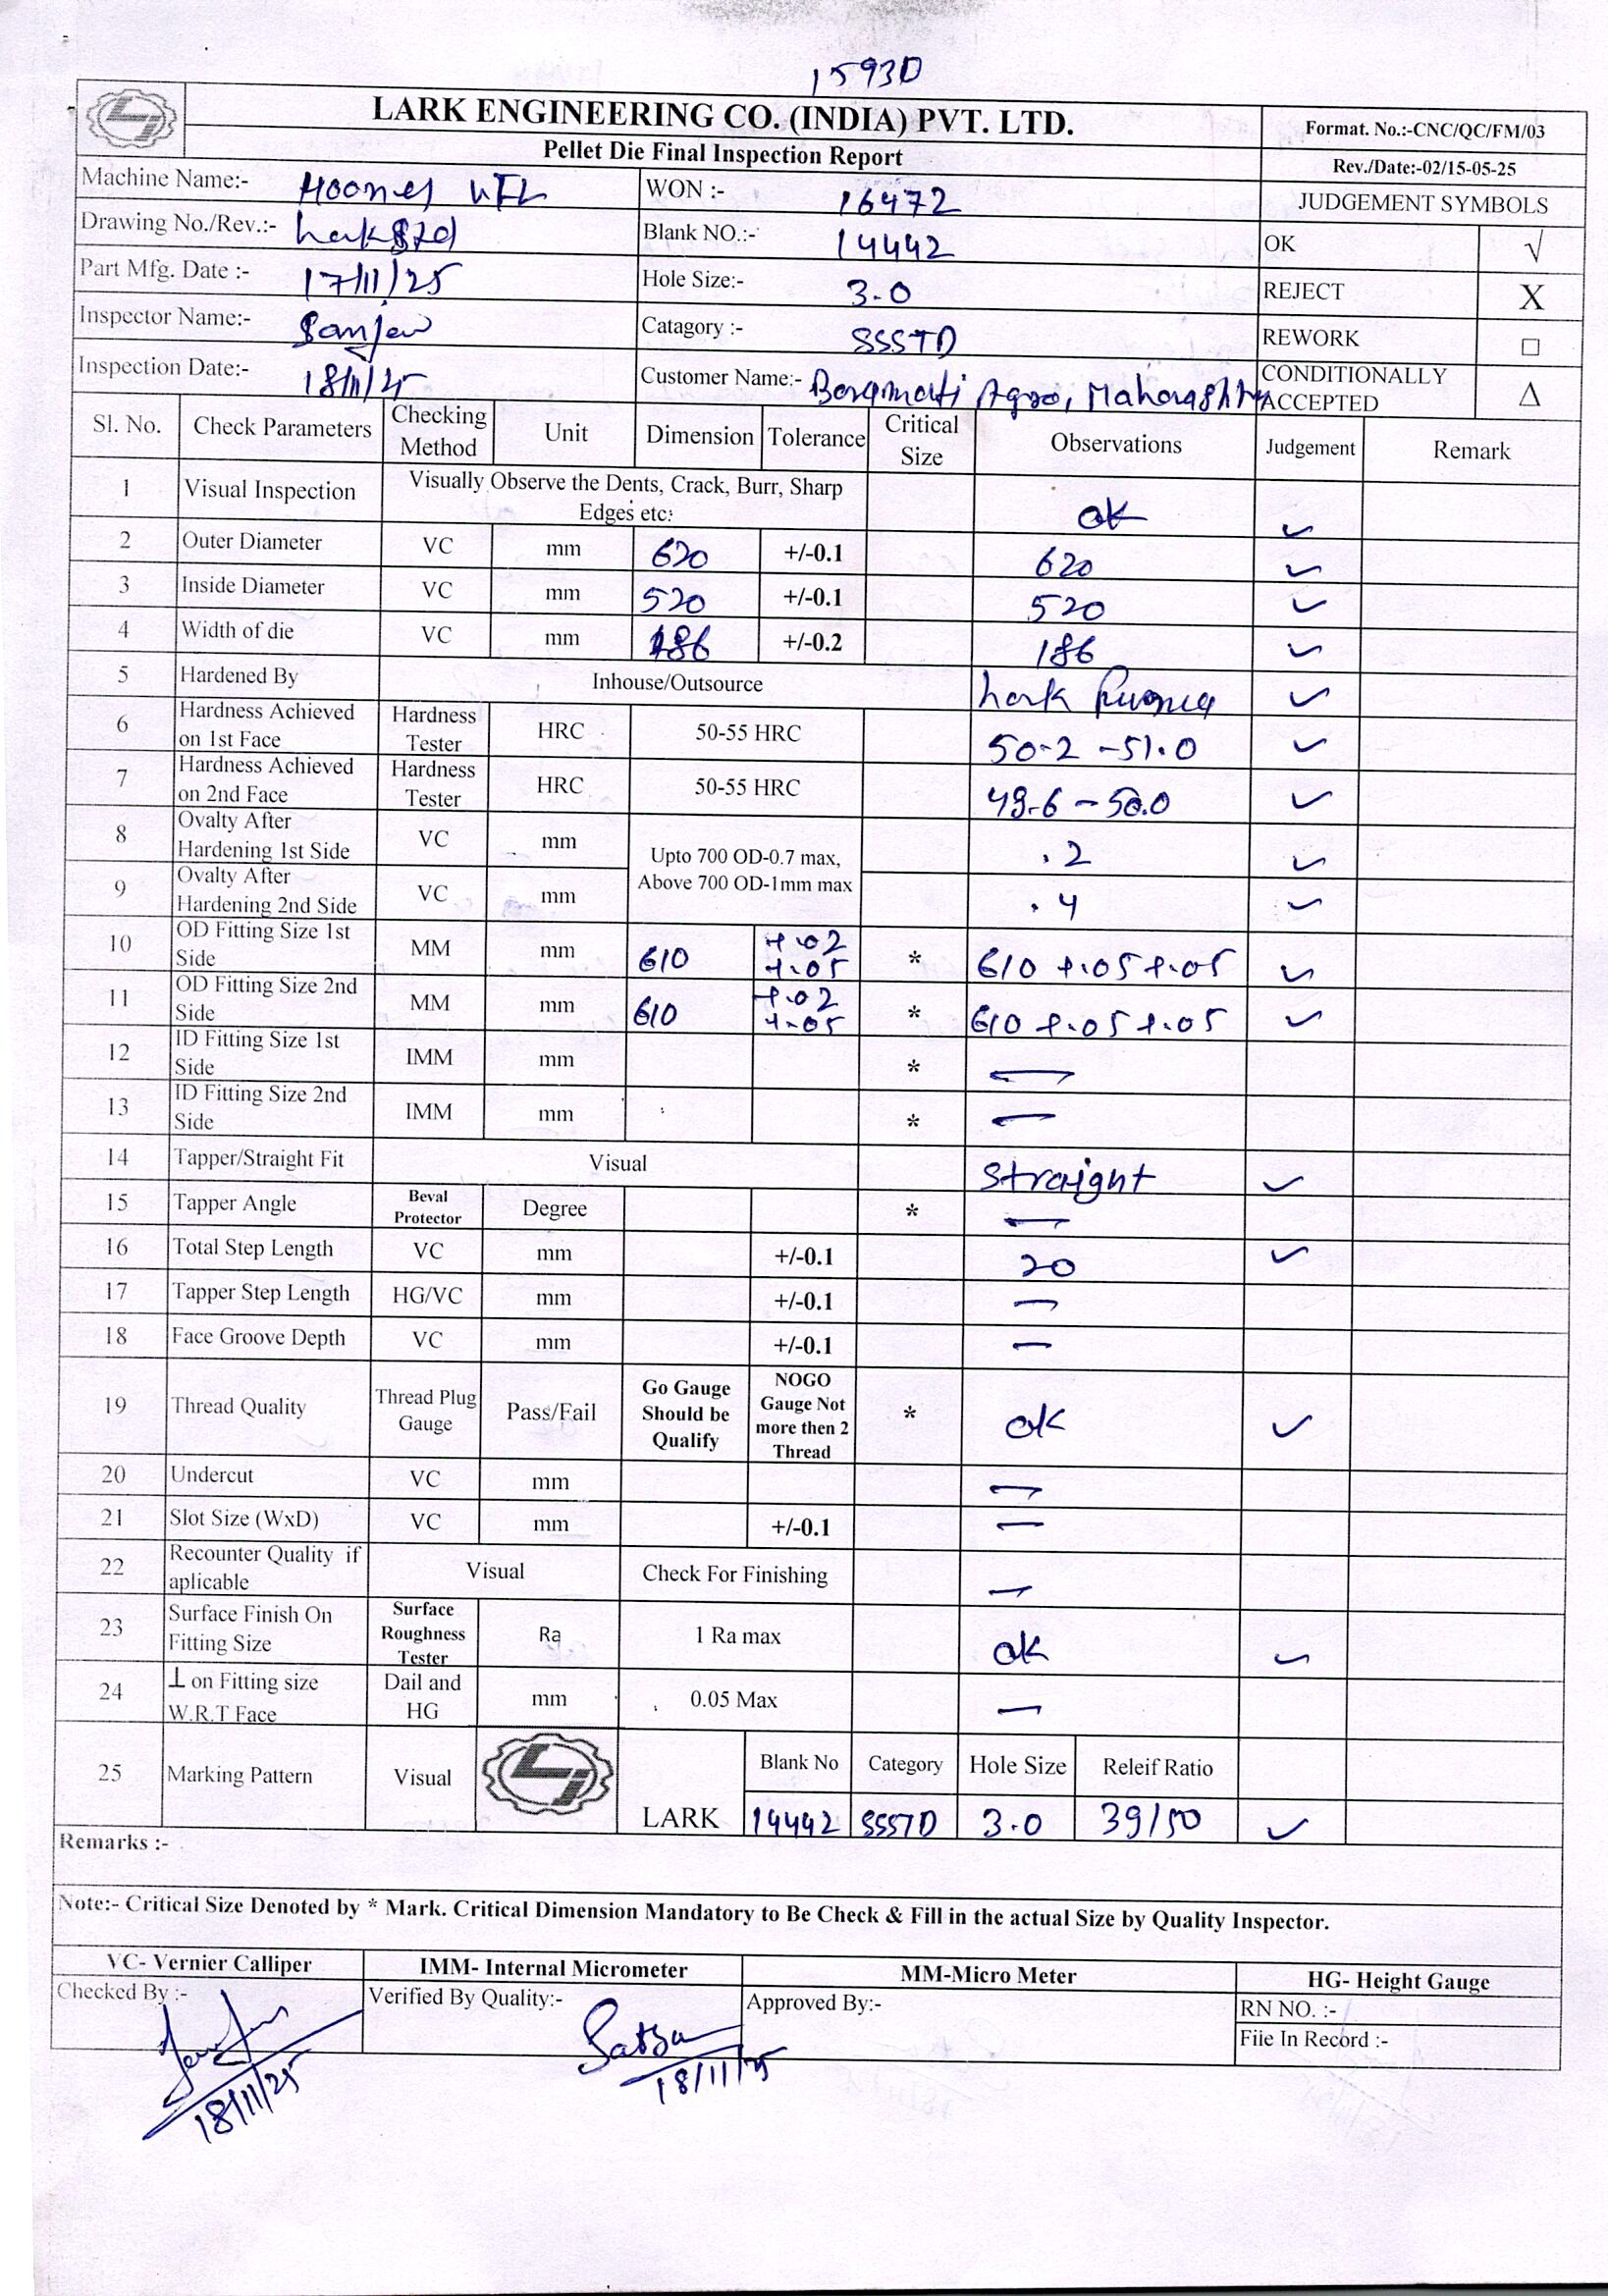 1593D
LARK ENGINEERING CO. (INDIA) PVT. LTD.
Format. No.:-CNC/QC/FM/03
Pellet Die Final Inspection Report
Rev./Date:-02/15-05-25
Machine Name:-
WON :- 16472
JUDGEMENT SYMBOLS
Drawing No./Rev.:- Lark Std
Blank NO.:- 14442
OK √
Part Mfg. Date :- 17/11/25
Hole Size:- 3.0
REJECT X
Inspector Name:- Sanjeev
Catagory :- SSSTD
REWORK □
Inspection Date:- 18/11/25
Customer Name:- Agro, Maharashtra
CONDITIONALLY ACCEPTED Δ
Sl. No. Check Parameters Checking Method Unit Dimension Tolerance Critical Size Observations Judgement Remark
1 Visual Inspection Visually Observe the Dents, Crack, Burr, Sharp Edges etc: ok ✓
2 Outer Diameter VC mm 620 +/-0.1 620 ✓
3 Inside Diameter VC mm 520 +/-0.1 520 ✓
4 Width of die VC mm 186 +/-0.2 186 ✓
5 Hardened By Inhouse/Outsource Lark ✓
6 Hardness Achieved on 1st Face Hardness Tester HRC 50-55 HRC 50.2 - 51.0 ✓
7 Hardness Achieved on 2nd Face Hardness Tester HRC 50-55 HRC 49.6 - 50.0 ✓
8 Ovalty After Hardening 1st Side VC mm Upto 700 OD-0.7 max, Above 700 OD-1mm max .2 ✓
9 Ovalty After Hardening 2nd Side VC mm .4 ✓
10 OD Fitting Size 1st Side MM mm 610 +.02 +.05 * 610 +.05 +.05 ✓
11 OD Fitting Size 2nd Side MM mm 610 +.02 +.05 * 610 +.05 +.05 ✓
12 ID Fitting Size 1st Side IMM mm * —
13 ID Fitting Size 2nd Side IMM mm * —
14 Tapper/Straight Fit Visual Straight ✓
15 Tapper Angle Beval Protector Degree * —
16 Total Step Length VC mm +/-0.1 20 ✓
17 Tapper Step Length HG/VC mm +/-0.1 —
18 Face Groove Depth VC mm +/-0.1 —
19 Thread Quality Thread Plug Gauge Pass/Fail Go Gauge Should be Qualify NOGO Gauge Not more then 2 Thread * ok ✓
20 Undercut VC mm —
21 Slot Size (WxD) VC mm +/-0.1 —
22 Recounter Quality if aplicable Visual Check For Finishing —
23 Surface Finish On Fitting Size Surface Roughness Tester Ra 1 Ra max ok ✓
24 ⊥ on Fitting size W.R.T Face Dail and HG mm 0.05 Max —
25 Marking Pattern Visual LARK Blank No Category Hole Size Releif Ratio
14442 SSSTD 3.0 39/50 ✓
Remarks :-
Note:- Critical Size Denoted by * Mark. Critical Dimension Mandatory to Be Check & Fill in the actual Size by Quality Inspector.
VC- Vernier Calliper IMM- Internal Micrometer MM-Micro Meter HG- Height Gauge
Checked By :- Verified By Quality:- Approved By:- RN NO. :-
File In Record :-
18/11/25 18/11/25